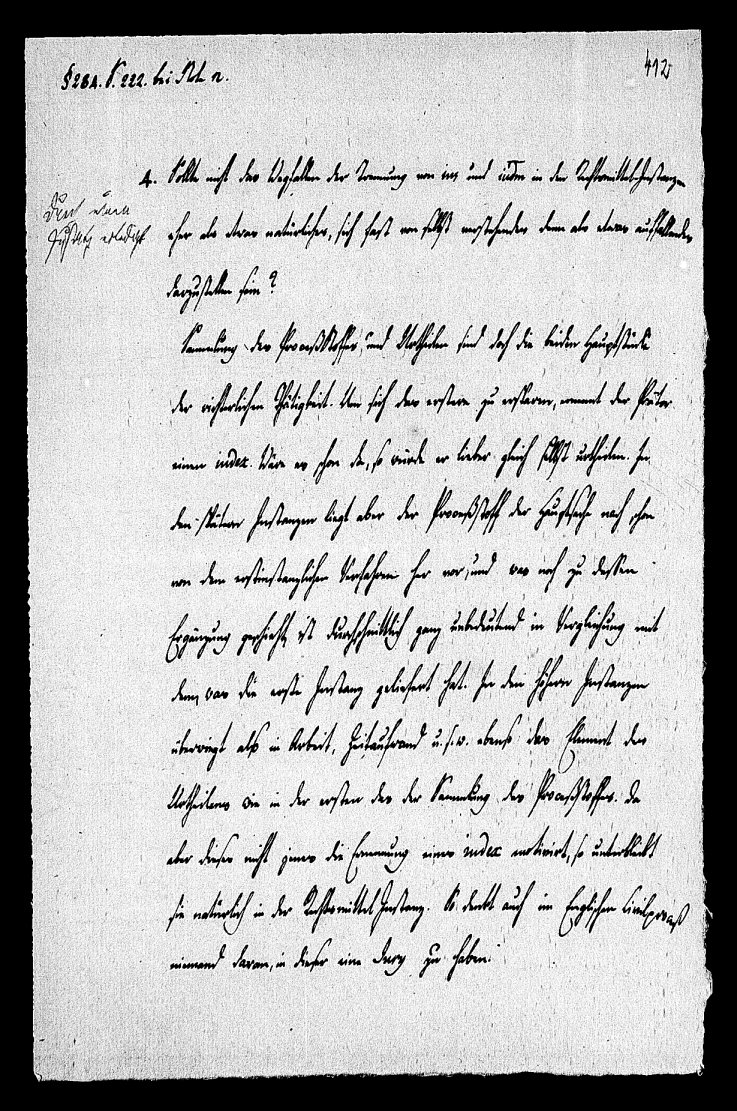 § 28A. S. 222. bei Not. n.
412
Durch einen
Zusatz erledigt
4. Sollte nicht das Wegfallen der Trennung von ius und iudm in den Rechtsmittel-Instanzen
eher als etwas natürliches, sich fast von selbst verstehendes denn als etwas auffallendes
darzustellen sein?
Sammlung des Proceßstoffes, und Urtheilen sind doch die beiden Hauptstücke
der richterlichen Thätigkeit. Um sich das erstere zu ersparen, ernennt der Prätor
einen iudex. Wäre er schon da, so würde er lieber gleich selbst urtheilen. In
den spätern Instanzen liegt aber der Proceßstoff der Hauptsache nach schon
von dem erstinstanzlichen Verfahren her vor, und was noch zu dessen
Ergänzung geschieht, ist durchschnittlich ganz unbedeutend in Vergleichung mit
dem, was die erste Instanz geliefert hat. In den höhern Instanzen
überwiegt also in Arbeit, Zeitaufwand u.s.w. ebenso das Element des
Urtheilens wie in der ersten das der Sammlung des Proceßstoffes. Da
aber dieses nicht jenes die Ernennung eines iudex motivirt, so unterbleibt
sie natürlich in der Rechtsmittel Instanz. So denkt auch im Englischen Civilproceß
niemand daran, in dieser eine Jury zu haben.